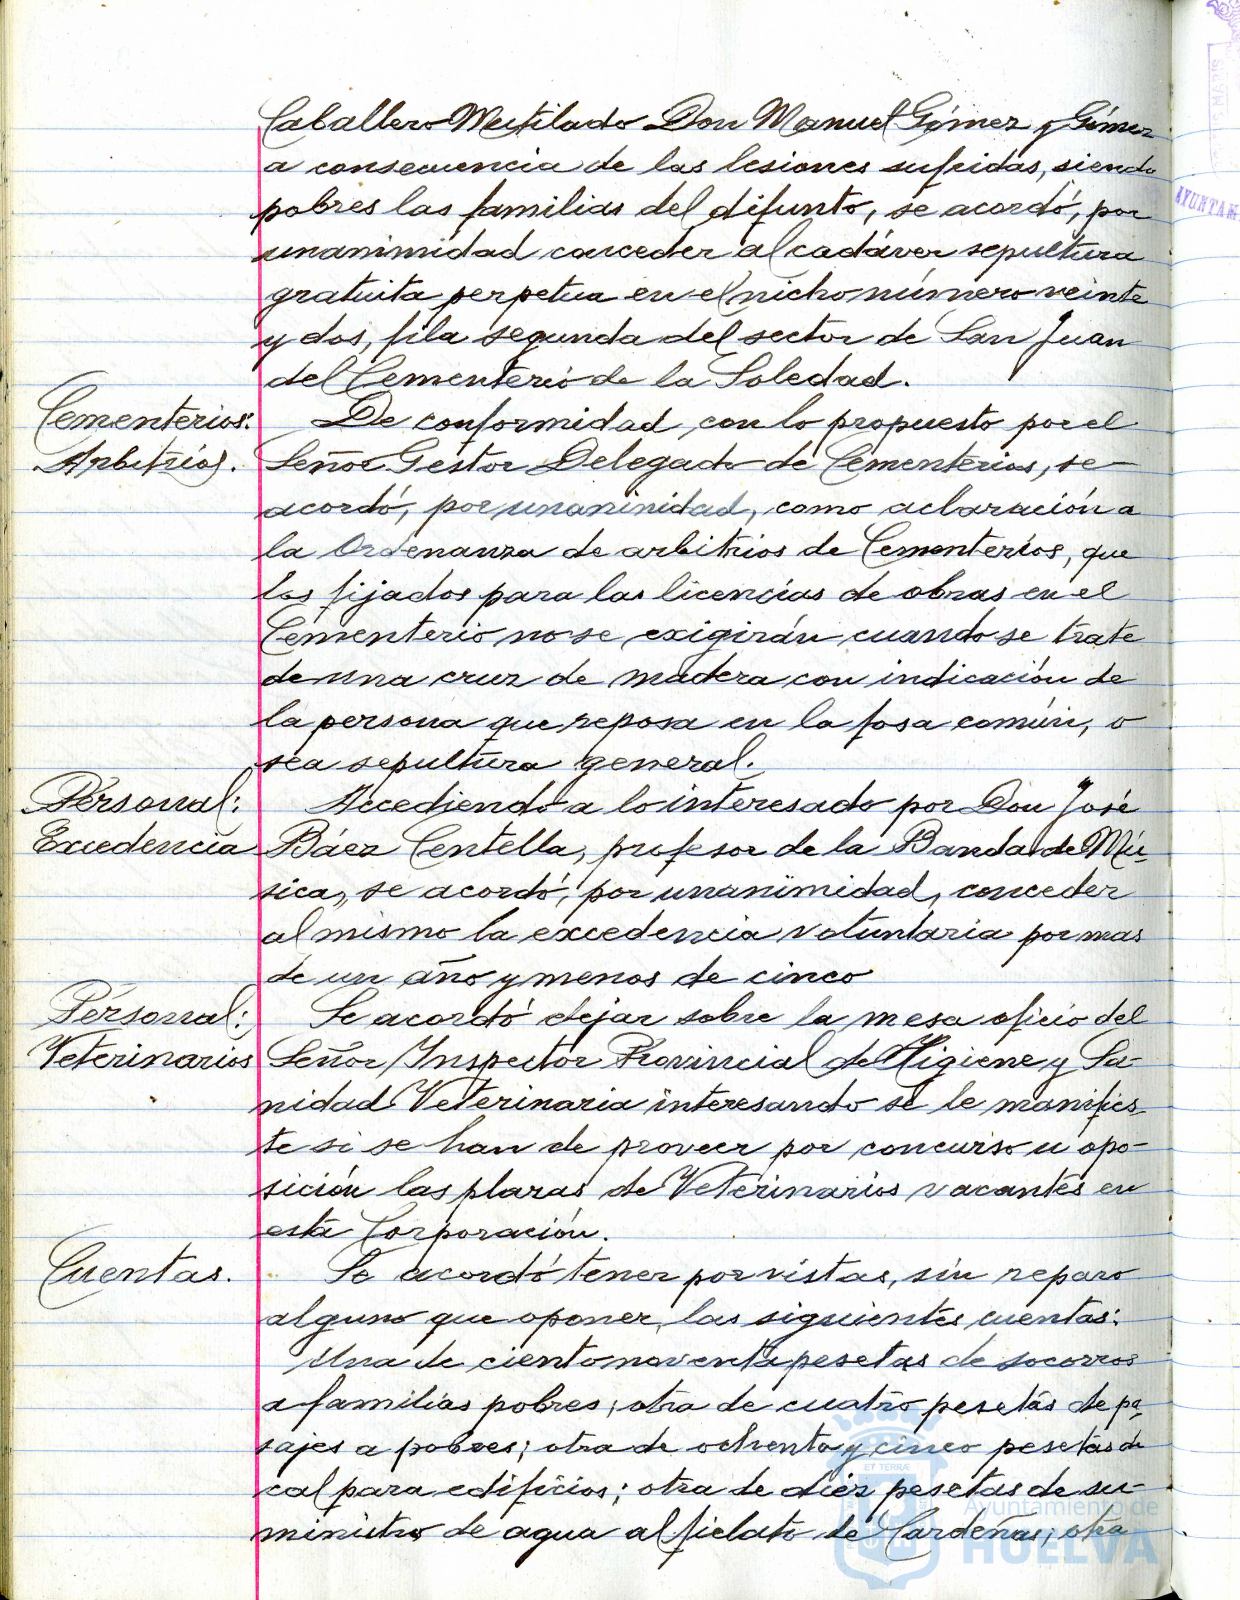 Caballero Mutilado Don Manuel Gómez y Gómez
a consecuencia de las lesiones sufridas, siendo
pobres las familias del difunto, se acordó, por
unanimidad conceder al cadáver sepultura
gratuita perpetua en el nicho número veinte
y dos, fila segunda del sector de San Juan
del Cementerio de la Soledad.
Cementerios: De conformidad con lo propuesto por el
Arbitrios. Señor Gestor Delegado de Cementerios, se
acordó, por unaninidad, como aclaración a
la Ordenanza de arbitrios de Cementerios, que
los fijados para las licencias de obras en el
Cementerio no se exigirán cuando se trate
de una cruz de madera con indicación de
la persona que reposa en la fosa común, o
sea sepultura general.
Personal: Accediendo a lo interesado por Don José
Excedencia Báez Centella, profesor de la Banda de Mú-
sica, se acordó, por unanimidad, conceder
al mismo la excedencia voluntaria por mas
de un año y menos de cinco
Personal: Se acordó dejar sobre la mesa oficio del
Veterinarios Señor Inspector Provincial de Higiene y Sa-
nidad Veterinaria interesando se le manifies-
te si se han de proveer por concurso u opo-
sición las plazas de Veterinarios vacantes en
esta Corporación.
Cuentas. Se acordó tener por vistas, sin reparo
alguno que oponer, las siguientes cuentas:
Una de ciento noventa pesetas de socorros
a familias pobres; otra de cuatro pesetas de pa-
sajes a pobres; otra de ochenta y cinco pesetas de
cal para edificios; otra de diez pesetas de su-
ministro de agua al fielato de Cardeñas; otra
AYUNTAM
Ayuntamiento de
HUELVA